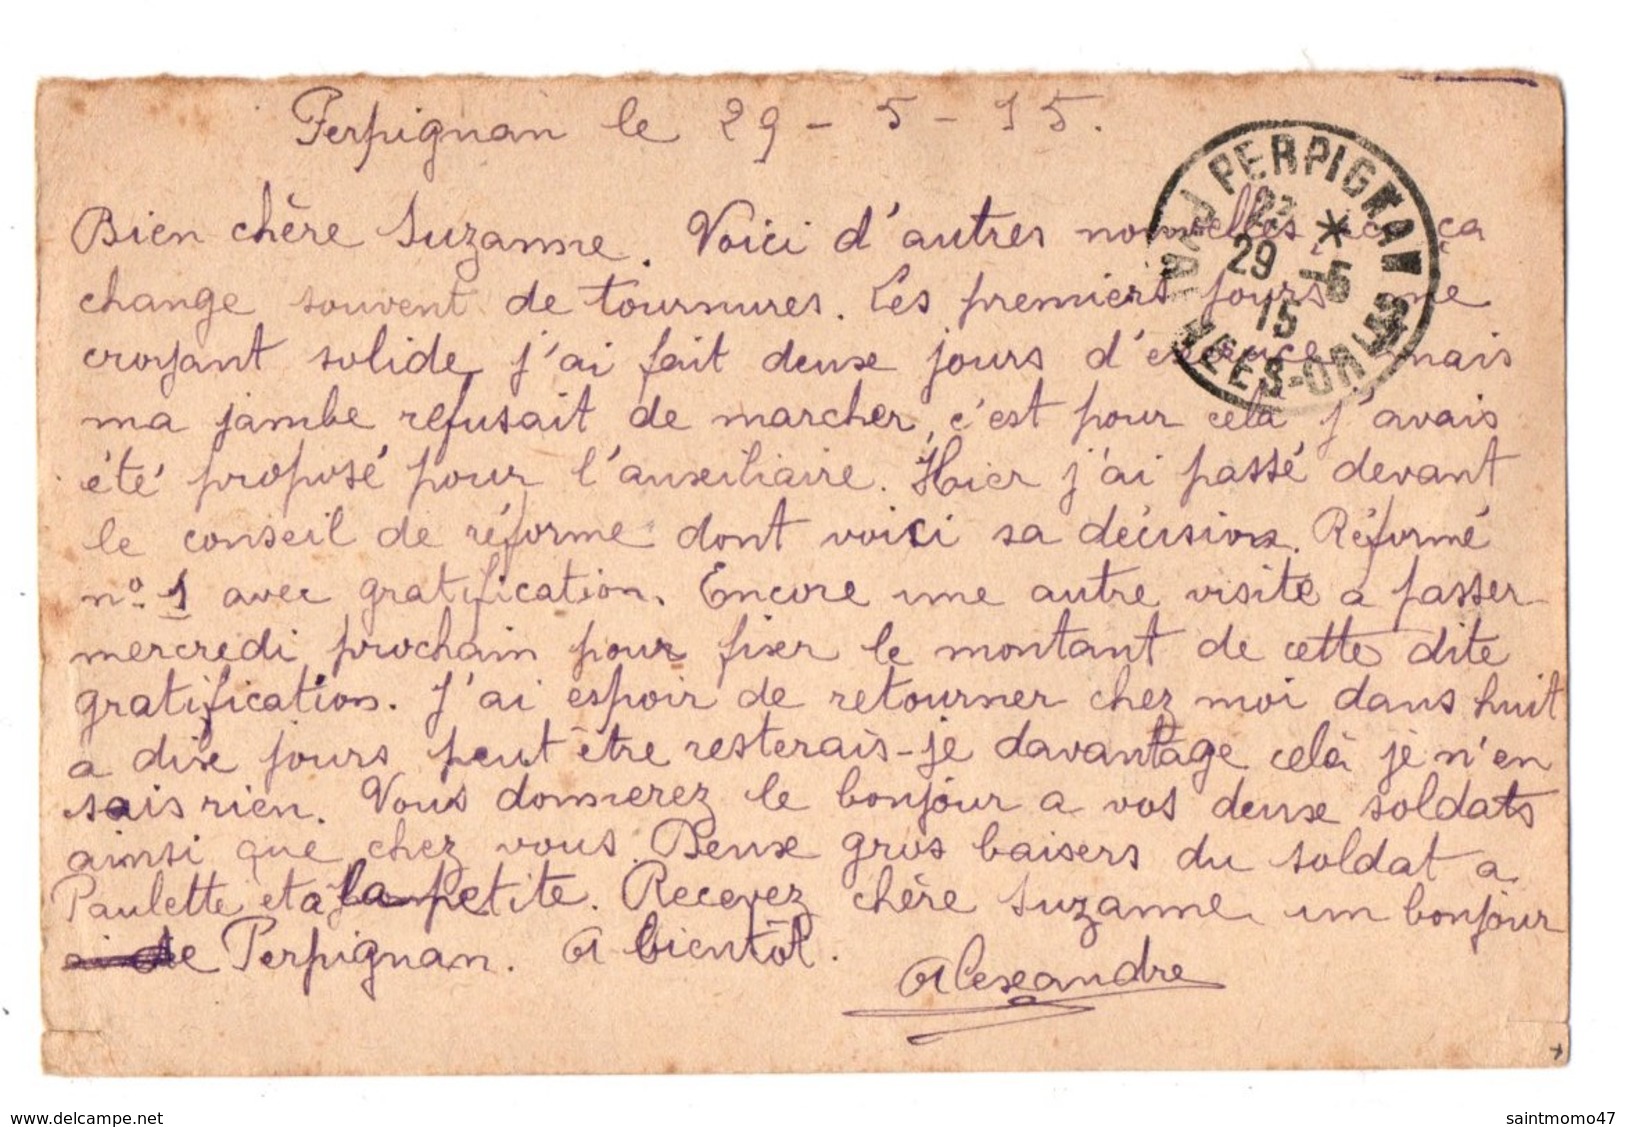 Perpignan le 29 - 5 - 15.
PERPIGNAN
23 *
29 -5
15
NÉES-ORLES
Bien chère Suzanne. Voici d'autres nouvelles, ici ça
change souvent de tournures. Les premiers jours me
croyant solide j'ai fait deux jours d'exercice mais
ma jambe refusait de marcher, c'est pour celà j'avais
été proposé pour l'auxiliaire. Hier j'ai passé devant
le conseil de réforme dont voici sa décision. Réformé
nº 1 avec gratification. Encore une autre visite a passer
mercredi prochain pour fixer le montant de cette dite
gratification. J'ai espoir de retourner chez moi dans huit
a dix jours peut être resterais-je davantage celà je n'en
sais rien. Vous donnerez le bonjour a vos deux soldats
ainsi que chez vous. Deux gros baisers du soldat a
Paulette et a la petite. Recevez chère Suzanne un bonjour
de Perpignan. A bientôt.
Alexandre
www.delcampe.net
saintmomo47